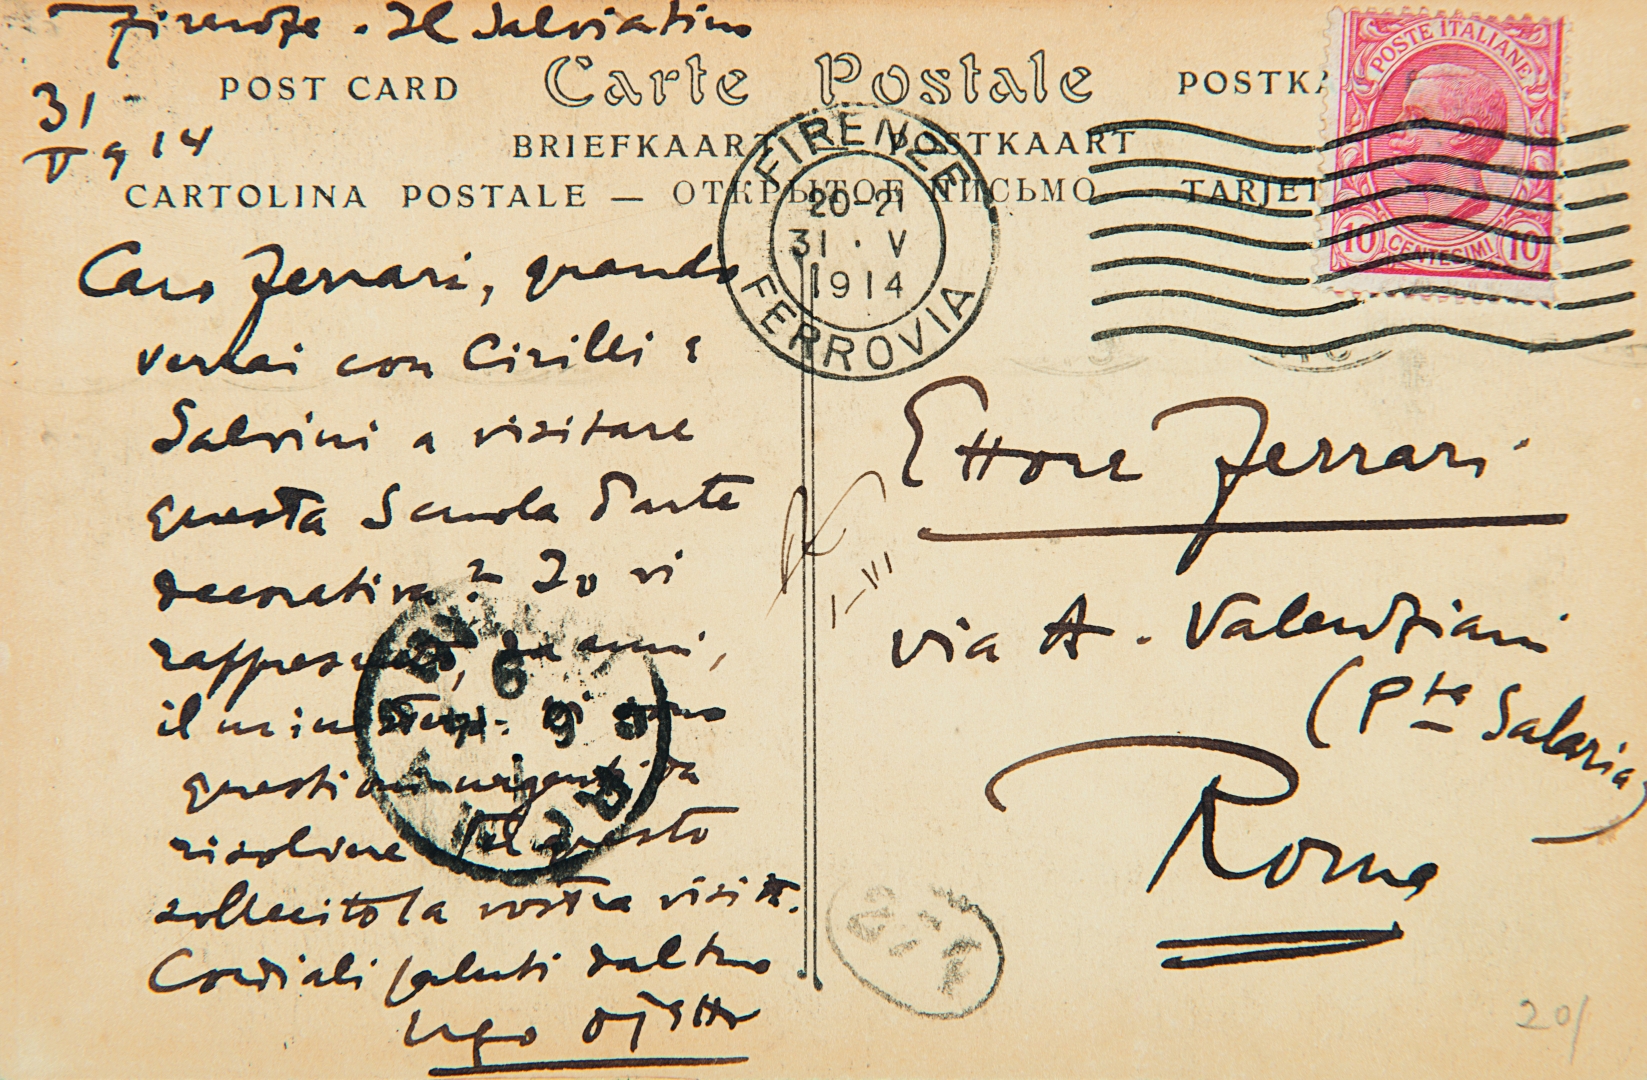 Firenze . Il Salviatino
POST CARD Carte Postale POSTKA
31
V 914
BRIEFKAART — POSTKAART
CARTOLINA POSTALE — ОТКРЫТОЕ ПИСЬМО — TARJET
POSTE ITALIANE
10 CENTESIMI 10
FIRENZE
20-21
31 · V
1914
FERROVIA
Caro Ferrari, quando
verrai con Cirilli e
Salvini a visitare
questa Scuola d'arte
decorativa? Io vi
rappresento, da anni,
il ministero. Vi sono
questioni urgenti da
risolvere. Pel questo
sollecito la vostra visita.
Cordiali saluti dal tuo
Ugo Ojetti
Ettore Ferrari
via A. Valenziani
(Pta Salaria)
Roma
1-VI
20/